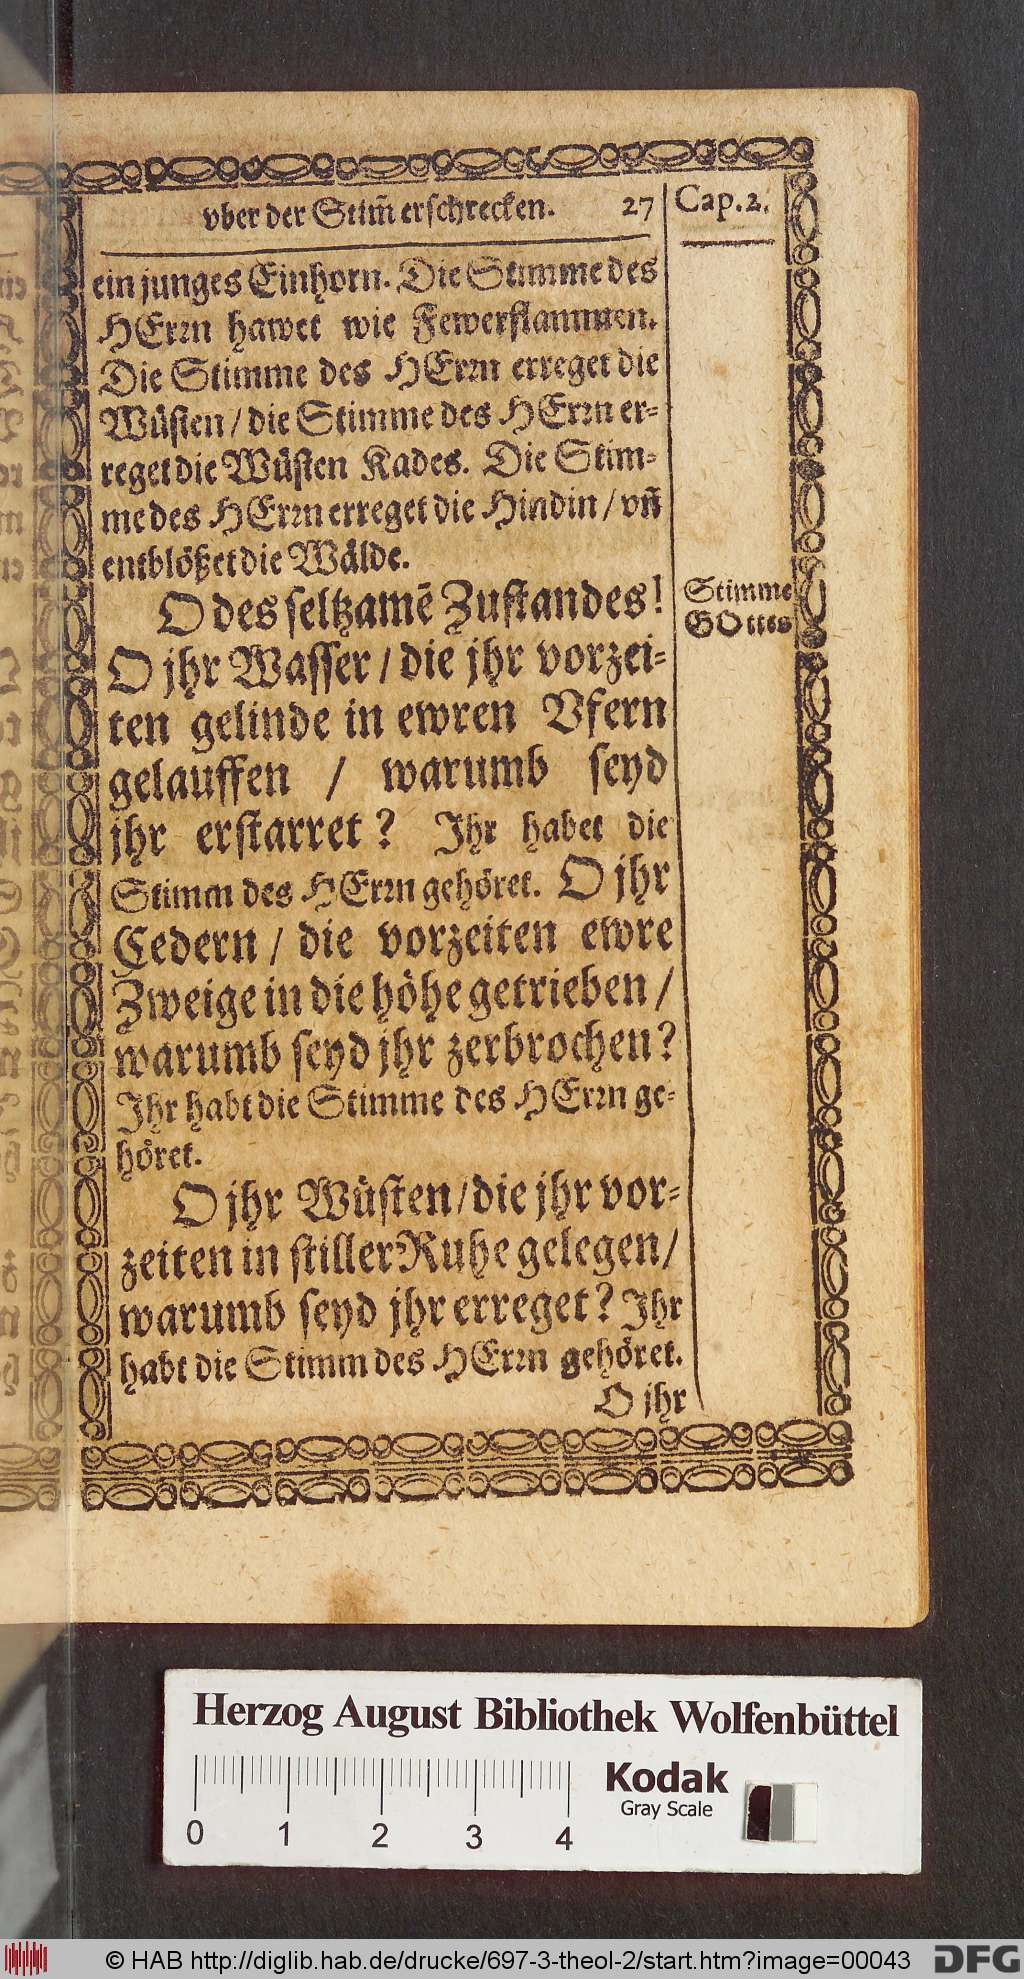 vber der Stim̃ erschrecken. 27 Cap. 2.
ein junges Einhorn. Die Stimme des
HErrn hawet wie Fewerflammen.
Die Stimme des HErrn erreget die
Wüsten / die Stimme des HErrn er-
reget die Wüsten Kades. Die Stim-
me des HErrn erreget die Hindin / vñ
entblößet die Wälde.
O des seltzamẽ Zustandes!
Stimme
GOttes
O jhr Wasser / die jhr vorzei-
ten gelinde in ewren Vfern
gelauffen / warumb seyd
jhr erstarret? Jhr habet die
Stimm des HErrn gehöret. O jhr
Cedern / die vorzeiten ewre
Zweige in die höhe getrieben /
warumb seyd jhr zerbrochen?
Jhr habt die Stimme des HErrn ge-
höret.
O jhr Wüsten / die jhr vor-
zeiten in stiller Ruhe gelegen /
warumb seyd jhr erreget? Jhr
habt die Stimm des HErrn gehöret.
O jhr
Herzog August Bibliothek Wolfenbüttel
Kodak
Gray Scale
0 1 2 3 4
© HAB http://diglib.hab.de/drucke/697-3-theol-2/start.htm?image=00043
DFG